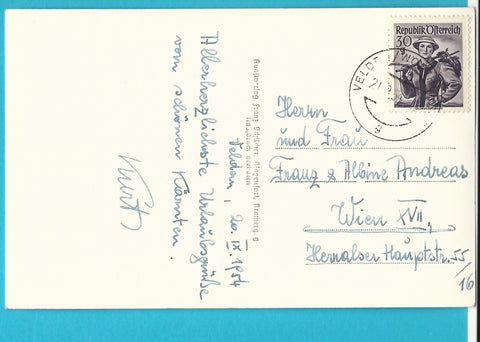 Velden, 20.IX.1954
Allerherzlichste Urlaubsgrüße
vom schönen Kärnten.
Kurt
Kunstverlag Franz Schilcher, Klagenfurt,
Nachdruck verboten
Republik Österreich
30
VELDEN
21
Herrn
und Frau
Franz & Albine Andreas
Wien XVII,
Hernalser Hauptstr. 55/16